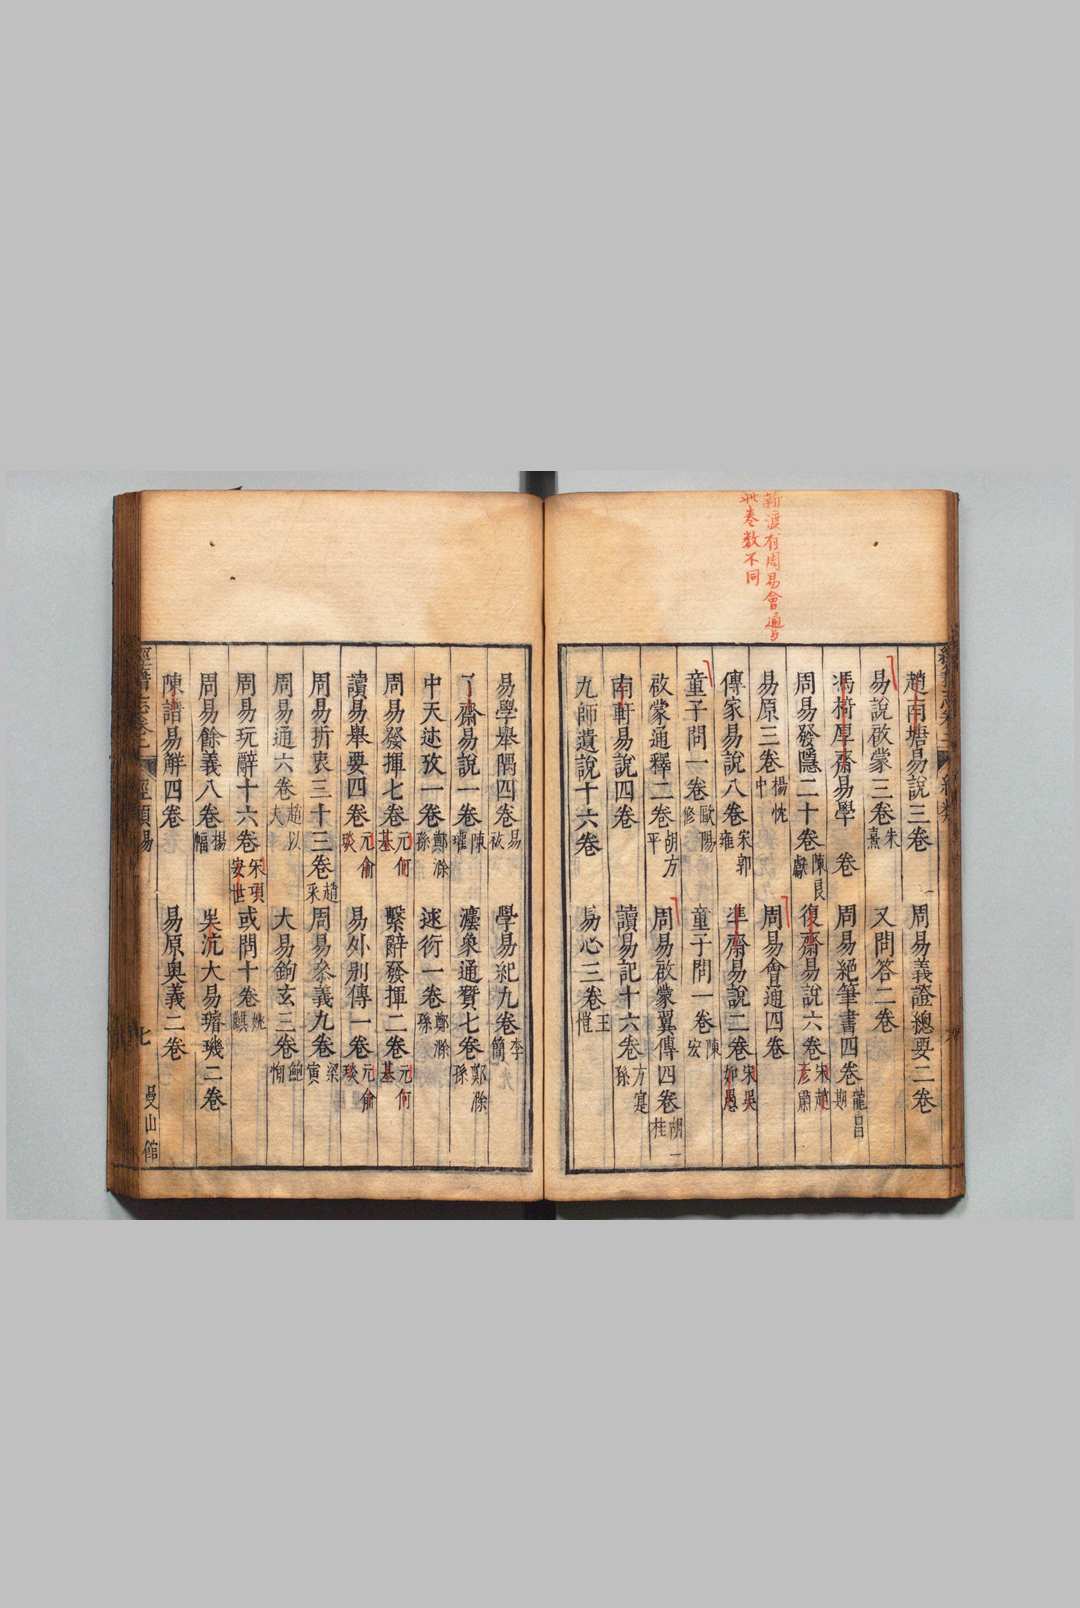 新渡有周易會通与
此卷數不同
趙南塘易說三卷 周易義證總要二卷
易說啟蒙三卷 朱熹 又問答二卷
馮椅厚齋易學 卷 周易絕筆書四卷 龍昌期
周易發隱二十卷 陳良獻 復齋易說六卷 宋趙彥肅
易原三卷 楊忱中 周易會通四卷
傳家易說八卷 宋郭雍 準齋易說二卷 宋吳如愚
童子問一卷 歐陽修 童子問一卷 陳宏
啟蒙通釋二卷 胡方平 周易啟蒙翼傳四卷 胡一桂
南軒易說四卷 讀易記十六卷 方寔孫
九師遺說十六卷 易心三卷 王愷
易學舉隅四卷 易祓 學易紀九卷 李簡
了齋易說一卷 陳瓘 灋象通贊七卷 鄭滁孫
中天述攷一卷 鄭滁孫 述衍一卷 鄭滁孫
周易發揮七卷 元何基 繫辭發揮二卷 元何基
讀易舉要四卷 元俞琰 易外別傳一卷 元俞琰
周易折衷三十三卷 趙采 周易參義九卷 梁寅
周易通六卷 趙以夫 大易鉤玄三卷 鮑恂
周易玩辭十六卷 宋項安世 或問十卷 姚麒
周易餘義八卷 楊幅 吳沆大易璿璣二卷
陳譜易解四卷 易原奧義二卷
經籍志卷二 經類 易 七 曼山館